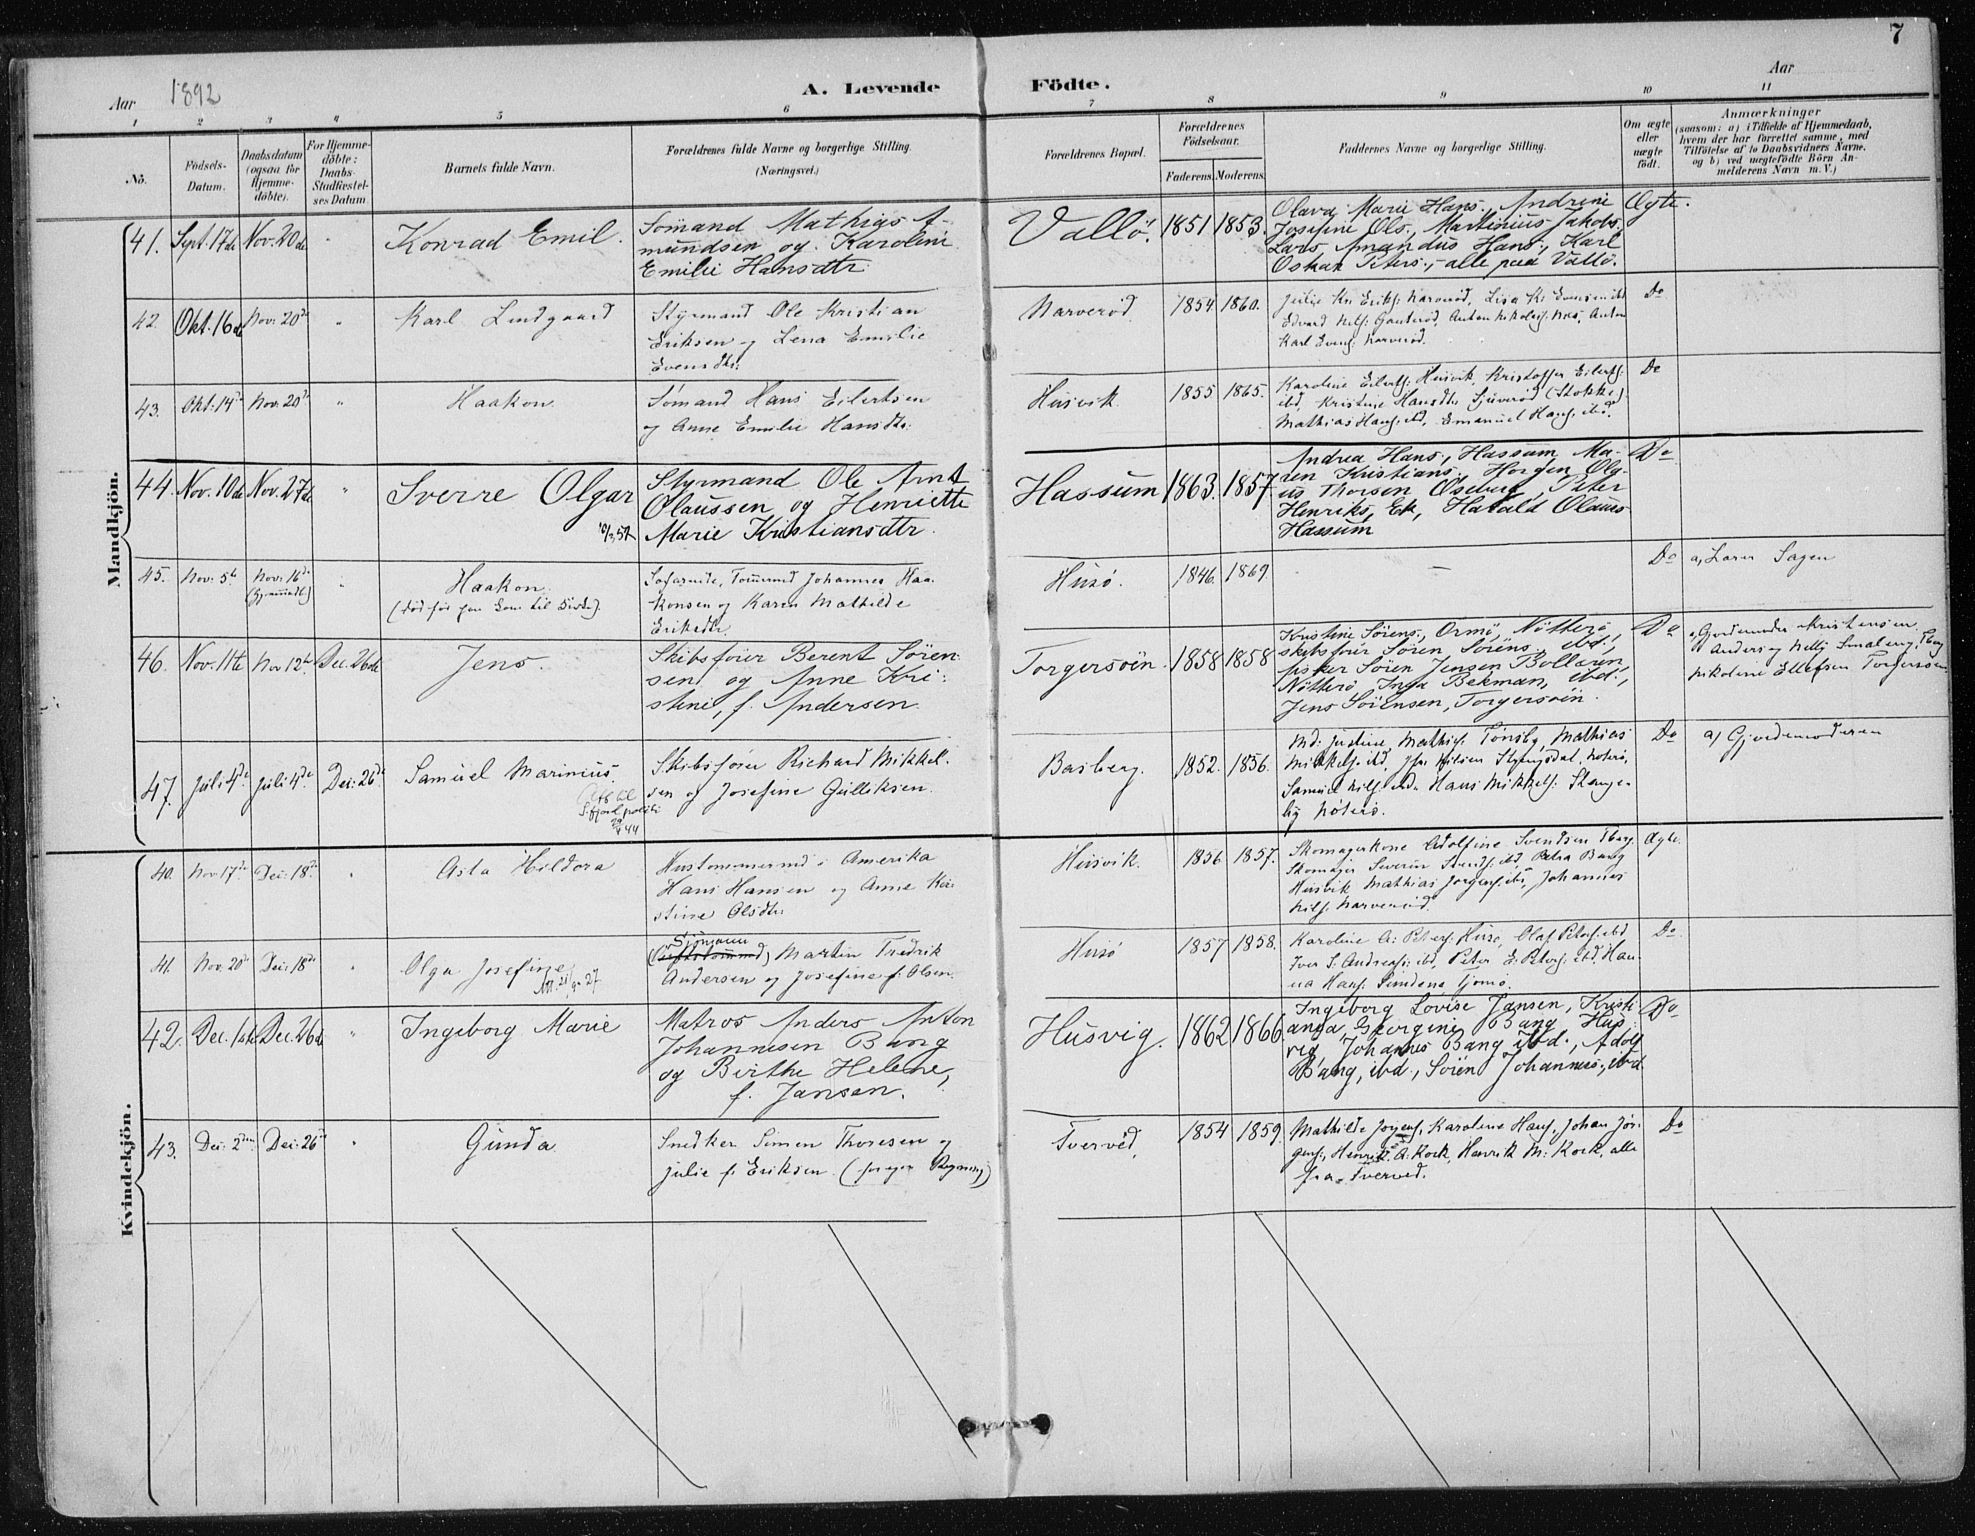 7
Aar 1892
A. Levende Födte.
Aar
1 2 3 4 5 6 7 8 9 10 11
No.
Födsels-Datum.
Daabsdatum (ogsaa for Hjemme-döbte).
For Hjemme-döbte: Daabs-Stadfæstel-ses Datum.
Barnets fulde Navn.
Forældrenes fulde Navne og borgerlige Stilling.
(Næringsvei.)
Forældrenes Bopæl.
Forældrenes Födselsaar.
Faderens. Moderens.
Faddernes Navne og borgerlige Stilling.
Om ægte eller uægte födt.
Anmærkninger
(saasom: a) i Tilfælde af Hjemmedaab,
hvem der har forrettet samme, med
Tilföielse af to Daabsvidners Navne,
og b) ved uægtefödte Börn An-
melderens Navn m. V.)
Mandkjön.
41. Sept. 17de Nov. 20de Konrad Emil.
Sömand Mathias A-
mundsen og Karoline
Emilie Hansdtr.
Vallö. 1851 1853.
Olava Marie Hans., Andrine
Josefine Ols., Martinius Jakobs.
Lars Amandus Hans., Karl
Oskar Peters., alle paa Vallö.
Ægte.
42. Okt. 16de Nov. 20de " Karl Lindgaard
Styrmand Ole Kristian
Eriksen og Lena Emilie
Evensdtr.
Narveröd. 1854 1860.
Edvard Nils. Gauteröd, Anton Nikolais. Anton
Karl Evens. Narveröd.
Do
43. Okt. 14de Nov. 20de " Haakon
Sömand Hans Eilertsen
og Anne Emilie Hansdtr.
Husvik. 1855 1865.
Karoline Eilerts. Husvik, Kristoffer Eilerts.
ibd, Kristine Hansdtr. (Stokke)
Mathias Hans. ibd, Emanuel Hans. ibd.
Do
44. Nov. 10de Nov. 27de " Sverre Olgar
10/3.57
Styrmand Ole Arnt
Olaussen og Henriette
Marie Kristiansdtr.
Hassum 1863. 1857
Andrea Hans., Hassum, Ma-
ren Kristians. Horgen, Ola-
us Thorsen Oseberg, Peter
Henriks, Ek, Harald Olaus
Hassum
Do
45. Nov. 5te Nov. 16de (Hjemmedb.) " Haakon.
Johannes Haa-
konsen og Karen Mathilde
Eriksdtr.
Husö. 1846. 1869.
—
Do a, Lars Sagen
46. Nov. 11te Nov 12te Dec. 26de Jens.
Skibsförer Berent Sören-
sen og Anne Kri-
stine, f. Andersen
Torgersöin. 1858 1858
Kristine Sörens., Ormö, Nötterö,
skibsförer Sören Sörens. ibd.,
fisker Sören Jensen Bollæren,
Nötterö, Inga Bekman, ibd.,
Jens Sörensen, Torgersöin.
Do
a, Gjordemoder Kristensen
Nikoline Ellefsen Torgersöen
47. Juli 4de Juli 4de Dec: 26de Samuel Marinius.
29/5 44
Skibsförer Richard Mikkel-
sen og Josefine Gulliksen.
Basberg. 1852. 1856.
Md: Justine Mathis. Tönsbg, Mathias
Mikkels. ibd,
Samuel Nils. ibd. Hans Mikkels.
Nöterö.
Do a) Gjordemoderen
Kvindekjön.
40. Nov 17de Dec: 18de " Asta Hildora
i Amerika
Hans Hansen og Anne Kri-
stine Olsdtr.
Husvik. 1856 1857.
Skomagerkone Adolfine Svendsen Tbrg.
Skomager Severin Svends. ibd, Petra Bang
Husvik Mathias Jorgens. ibd, Johannes
Nils. Narveröd.
Ægte.
41. Nov. 20de Dec: 18de " Olga Josefine
Att. 21/9 27
Sjömann
Martin Fredrik
Andersen og Josefine f. Olsen.
Husö 1857 1858.
Karoline A: Peters. Husö, Olaf Peters. ibd
Iver S: Andreas. ibd, Peter E: Peters. ibd, Han-
na Hans. Sundene Tjömö.
Do
42. Dec. 1ste Dec. 26de " Ingeborg Marie
Matros Anders Anton
Johannesen Bang
og Birthe Helene,
f. Jansen.
Husvig. 1862 1866
Ingeborg Lovise Jansen, Kristi-
ania, Georgine Bang, Hus-
vig, Johannes Bang ibd., Adolf
Bang, ibd., Sören Johannes., ibd
Do
43. Dec: 2den Dec: 26de " Gunda
Snedker Simen Thoresen og
Julie f. Eriksen. (for egen Regning)
Tverved. 1854 1859
Mathilde Jorgens., Karoline Hans., Johan Jör-
gens., Henrik A: Kock, Henrik M: Kock, alle
fra Tverved.
Do